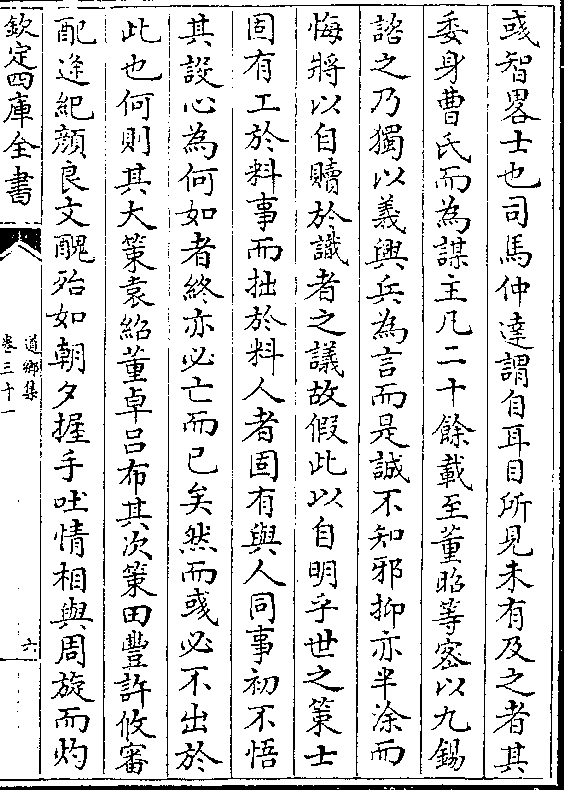 彧智畧士也司馬仲達謂自耳目所見未有及之者其
委身曹氏而為謀主凡二十餘載至董昭等密以九錫
諮之乃獨以義興兵為言而是誠不知邪抑亦半塗而
悔將以自贖於識者之議故假此以自明乎世之策士
固有工於料事而拙於料人者固有與人同事初不悟
其設心為何如者終亦必亡而已矣然而彧必不出於
此也何則其大策袁紹董卓吕布其次策田豐許攸審
配逄紀顔良文醜殆如朝夕握手吐情相與周旋而灼
欽定四庫全書
道鄉集
卷三十一
六